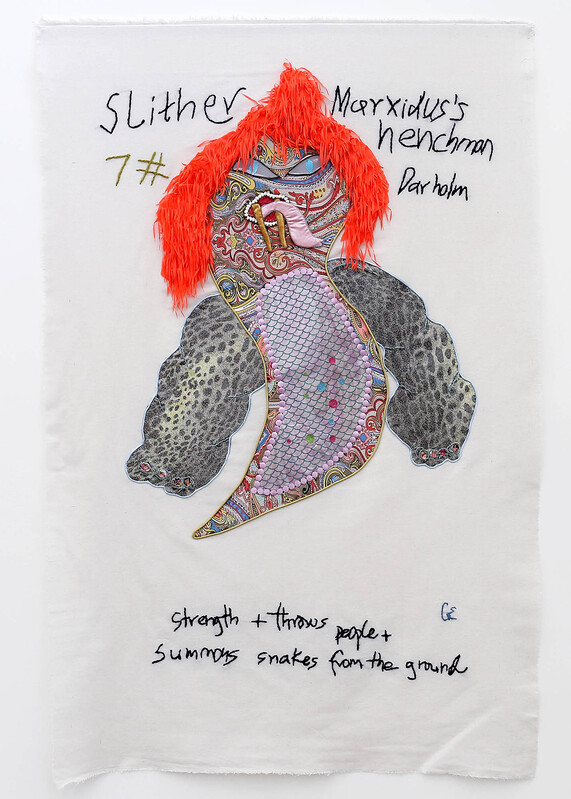 Slither
7#
Marxidus's
henchman
Darholm
strength + throws people +
summons snakes from the ground
CE